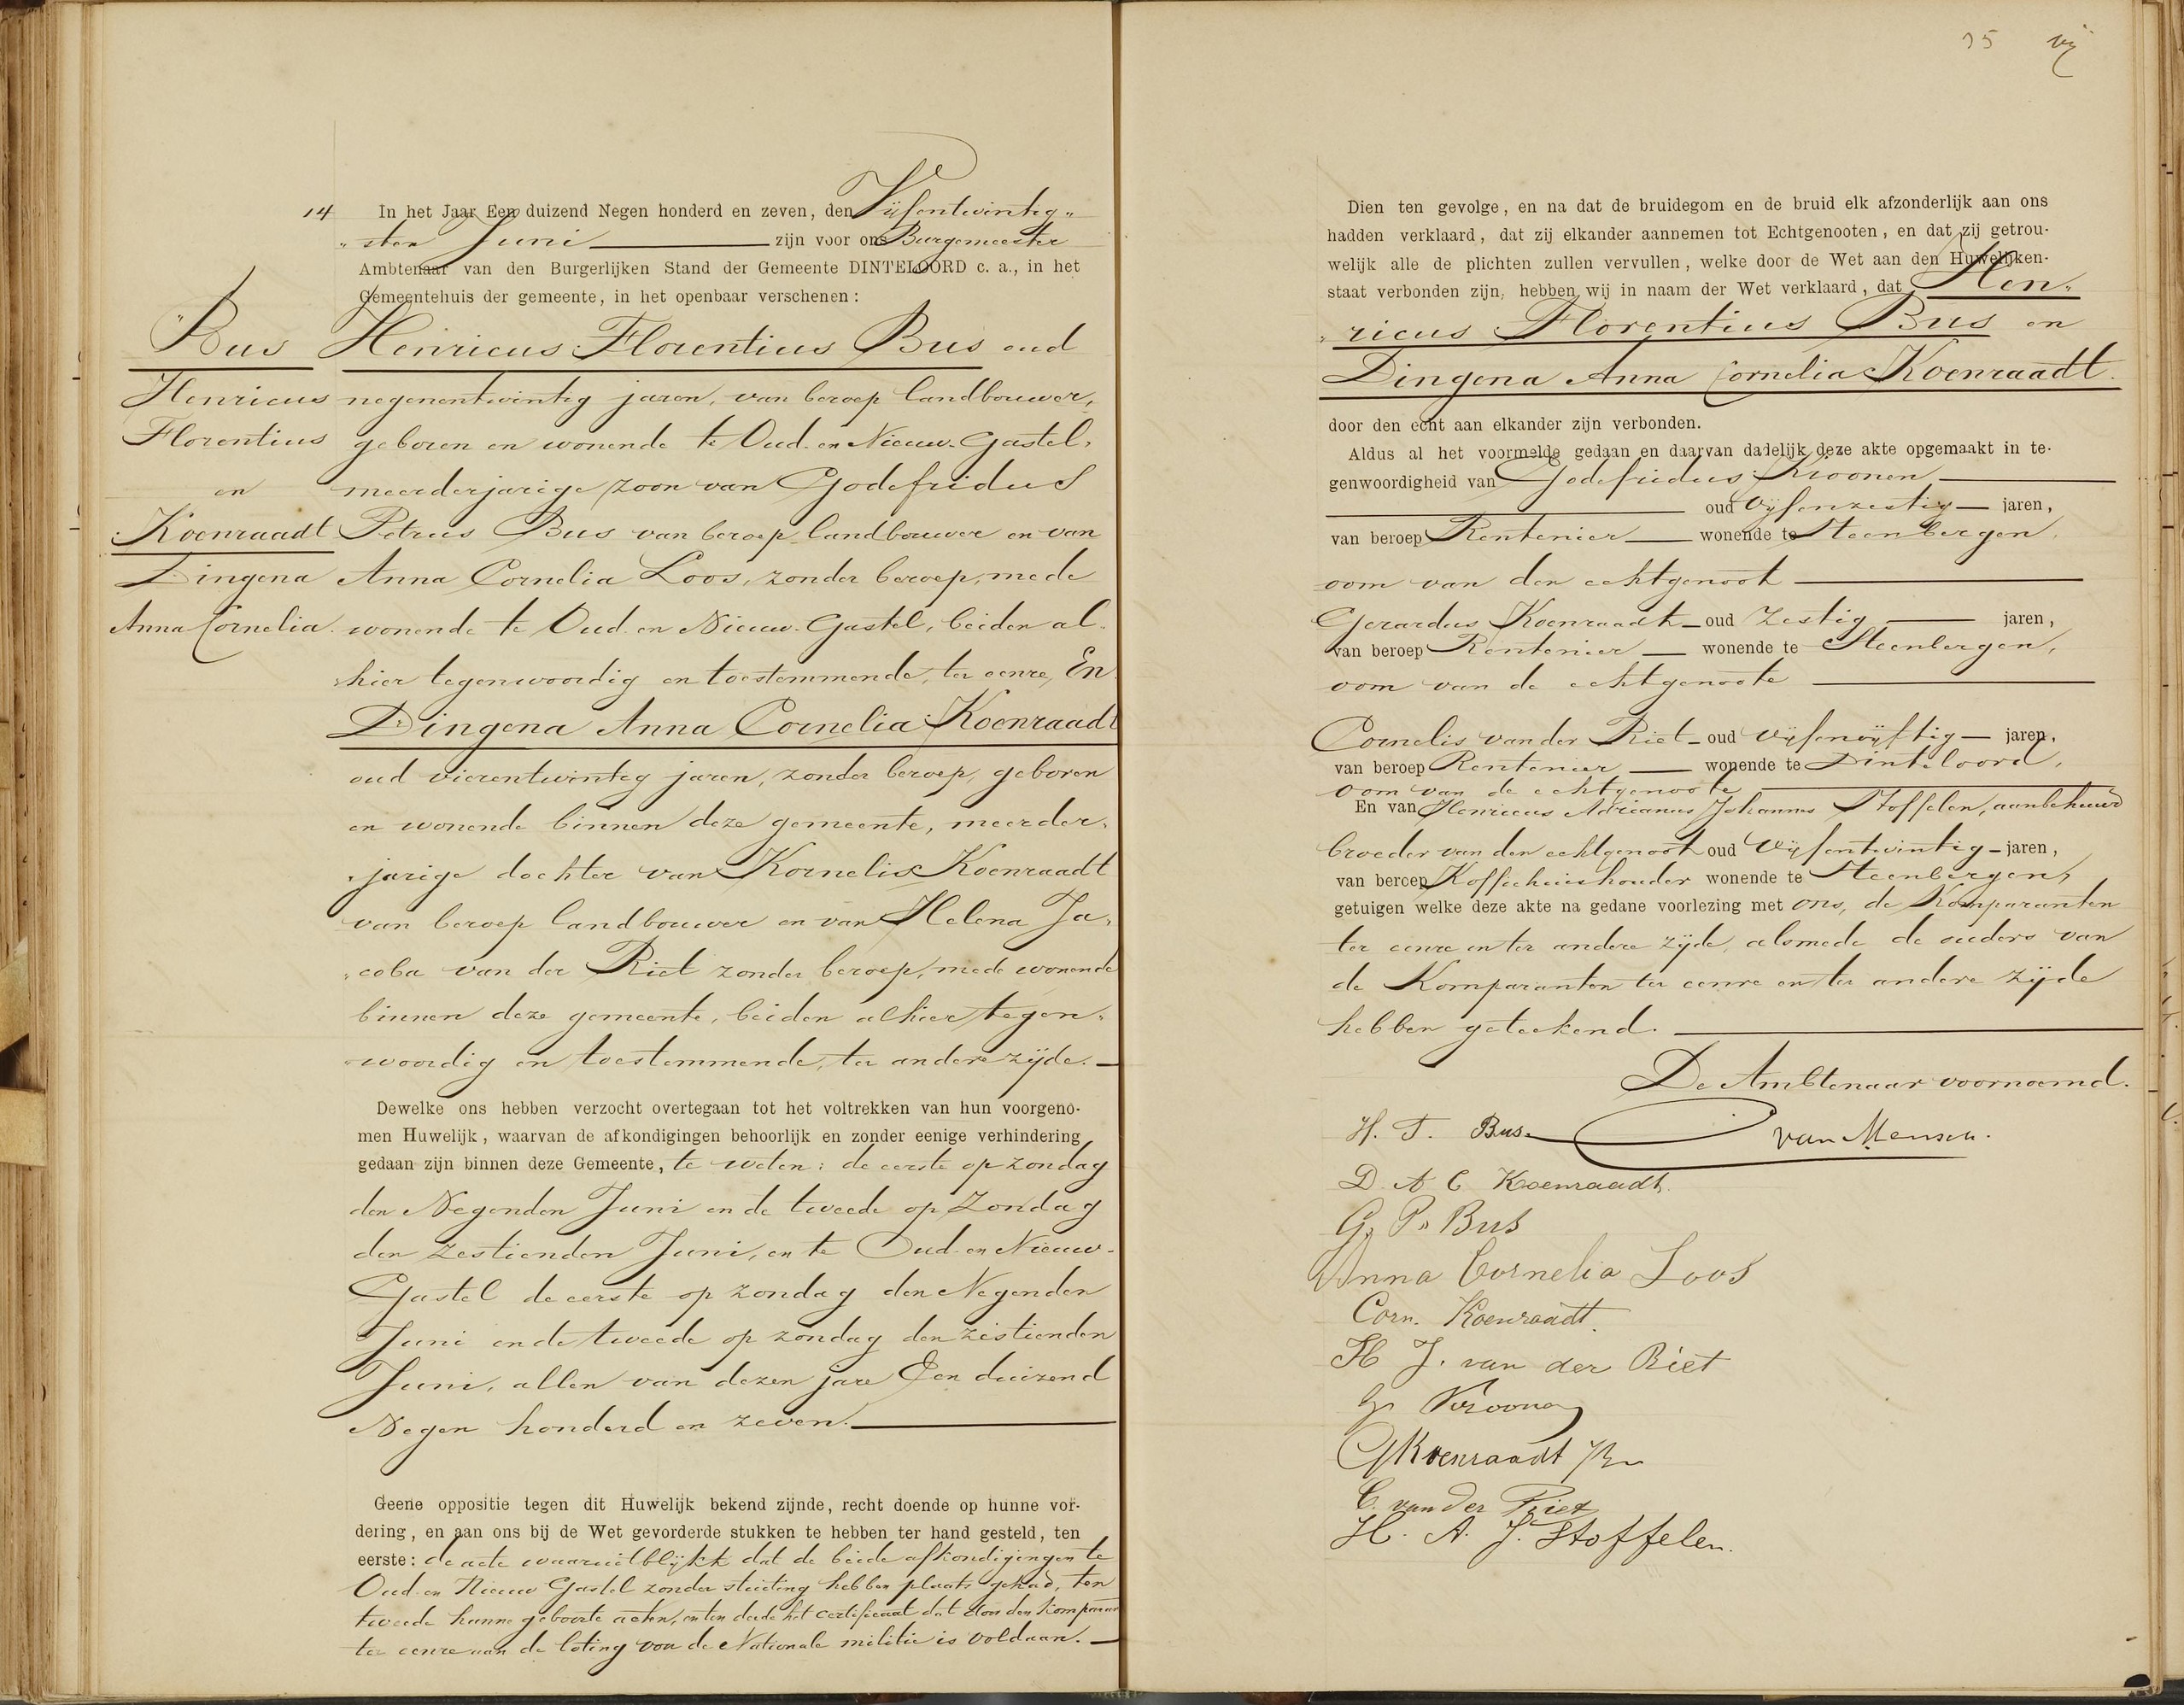 14 In het Jaar Een duizend Negen honderd en zeven, den Vijfentwintig„
„sten Juni zijn voor ons Burgemeester
Ambtenaar van den Burgerlijken Stand der Gemeente DINTELOORD c. a., in het
Gemeentehuis der gemeente, in het openbaar verschenen:
Bus
Henricus
Florentius
en
Koenraadt
Dingena
Anna Cornelia.
Henricus Florentius Bus oud
negenentwintig jaren, van beroep landbouwer,
geboren en wonende te Oud- en Nieuw-Gastel,
meerderjarige zoon van Godefridus
Petrus Bus van beroep landbouwer en van
Anna Cornelia Loos, zonder beroep, mede
wonende te Oud- en Nieuw-Gastel, beiden al-
hier tegenwoordig en toestemmende, ter eenre, En
Dingena Anna Cornelia Koenraadt
oud vierentwintig jaren, zonder beroep, geboren
en wonende binnen deze gemeente, meerder„
„jarige dochter van Kornelis Koenraadt
van beroep landbouwer en van Helena Ja„
„coba van der Riet zonder beroep, mede wonende
binnen deze gemeente, beiden alhier tegen„
„woordig en toestemmende, ter andere zijde.
Dewelke ons hebben verzocht overtegaan tot het voltrekken van hun voorgeno-
men Huwelijk, waarvan de afkondigingen behoorlijk en zonder eenige verhindering
gedaan zijn binnen deze Gemeente, te weten: de eerste op zondag
den Negenden Juni en de tweede op Zondag
den zestienden Juni, en te Oud- en Nieuw-
Gastel de eerste op zondag den Negenden
Juni en de tweede op zondag den zestienden
Juni, allen van dezen jare Een duizend
Negen honderd en zeven.
Geene oppositie tegen dit Huwelijk bekend zijnde, recht doende op hunne vor-
dering, en aan ons bij de Wet gevorderde stukken te hebben ter hand gesteld, ten
eerste: de acte waaruit blijkt dat de beide afkondigingen te
Oud- en Nieuw Gastel zonder stuiting hebben plaats gehad, ten
tweede hunne geboorte acten, en ten derde het certificaat dat door den komparant
ter eenre aan de loting voor de Nationale militie is voldaan.
35
Dien ten gevolge, en na dat de bruidegom en de bruid elk afzonderlijk aan ons
hadden verklaard, dat zij elkander aannemen tot Echtgenooten, en dat zij getrou-
welijk alle de plichten zullen vervullen, welke door de Wet aan den Huwelijken-
staat verbonden zijn, hebben wij in naam der Wet verklaard, dat Hen„
„ricus Florentius Bus en
Dingena Anna Cornelia Koenraadt.
door den echt aan elkander zijn verbonden.
Aldus al het voormelde gedaan en daarvan dadelijk deze akte opgemaakt in te-
genwoordigheid van Godefridus Kroonen
oud vijfenzestig jaren,
van beroep Rentenier wonende te Steenbergen,
oom van den echtgenoot
Gerardus Koenraadt oud Zestig jaren,
van beroep Rentenier wonende te Steenbergen,
oom van de echtgenoote
Cornelis van der Riet oud vijfenvijftig jaren,
van beroep Rentenier wonende te Dinteloord,
oom van de echtgenoote
En van Henricus Adrianus Johannes Stoffelen, aanbehuwd
broeder van den echtgenoot oud Vijfentwintig jaren,
van beroep Koffiehuishouder wonende te Steenbergen,
getuigen welke deze akte na gedane voorlezing met ons, de Komparanten
ter eenre en ter andere zijde, alsmede de ouders van
de Komparanten ter eenre en ter andere zijde
hebben geteekend.
De Ambtenaar voornoemd.
H. F. Bus. van Mensen.
D. A C Koenraadt
G. P. Bus
Anna Cornelia Loos
Corn. Koenraadt.
H J. van der Riet
G Kroonen
G Koenraadt
C. van der Riet
H. A. J. Stoffelen.